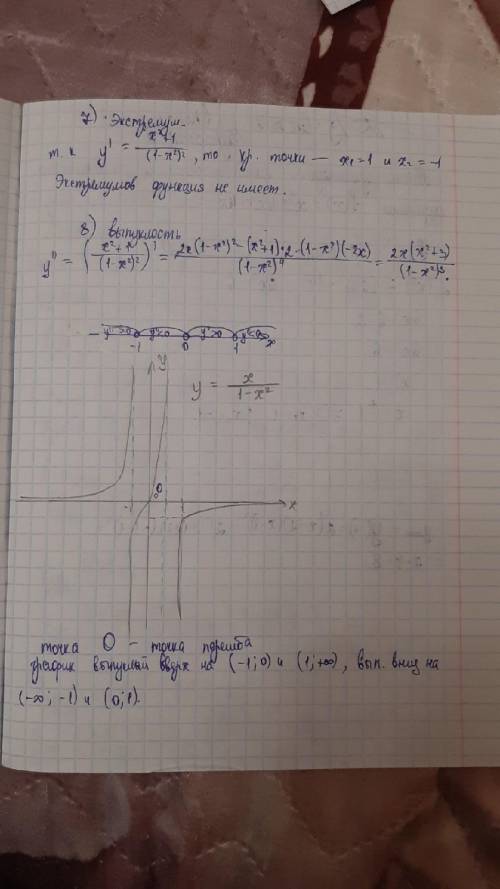 7) Экстремум.
т. к y' = x²+1 / (1-x²)², то кр. точки — x₁=1 и x₂ = -1
Экстремумов функция не имеет.
8) выпуклость
y'' = (x²+1 / (1-x²)²)' = 2x(1-x²)² - (x²+1)·2·(1-x²)(-2x) / (1-x²)⁴ = 2x(x²+3) / (1-x²)³.
y''>0 y''<0 y''>0 y''<0
-1 0 1 x
y
y = x / 1-x²
0
-1 1 x
точка O - точка перегиба
график выпуклый вверх на (-1; 0) и (1; +∞), вып. вниз на
(-∞; -1) и (0; 1).